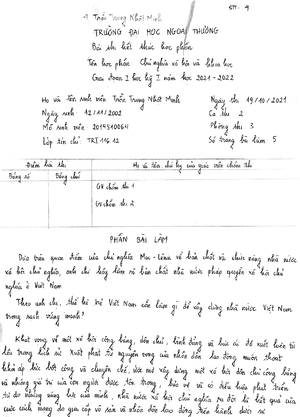 Trần Trung Nhất Minh STT: 9
TRƯỜNG ĐẠI HỌC NGOẠI THƯƠNG
Bài thi kết thúc học phần
Tên học phần: Chủ nghĩa xã hội và khoa học
Giai đoạn I học kỳ I năm học 2021 - 2022
Họ và tên sinh viên Trần Trung Nhất Minh Ngày thi 19/10/2021
Ngày sinh 12/11/2002 Ca thi 2
Mã sinh viên 2014510064 Phòng thi 3
Lớp tín chỉ: TRI 116.12 Số trang bài làm 5
Điểm bài thi Họ và tên, chữ ký của giáo viên chấm thi
Bằng số Bằng chữ GV chấm thi 1
GV chấm thi 2
PHẦN BÀI LÀM
Dựa trên quan điểm của chủ nghĩa Mac-Lênin về bản chất và chức năng nhà nước
xã hội chủ nghĩa, anh chị hãy làm rõ bản chất nhà nước pháp quyền xã hội chủ
nghĩa ở Việt Nam
Theo anh chị, thế hệ trẻ Việt Nam cần làm gì để xây dựng nhà nước Việt Nam
trong sạch vững mạnh?
Khát vọng về một xã hội công bằng, dân chủ, bình đẳng và bác ái đã xuất hiện từ
lâu trong lịch sử. Xuất phát từ nguyện vọng của nhân dân lao động muốn thoát
khỏi áp bức bất công và chuyên chế, ước mơ xây dựng một xã hội dân chủ công bằng
và những giá trị của con người được tôn trọng, bảo vệ và có điều kiện phát triển
tự do những năng lực của mình, nhà nước xã hội chủ nghĩa ra đời là kết quả của
cuộc cách mạng do giai cấp vô sản và nhân dân lao động tiến hành dưới sự